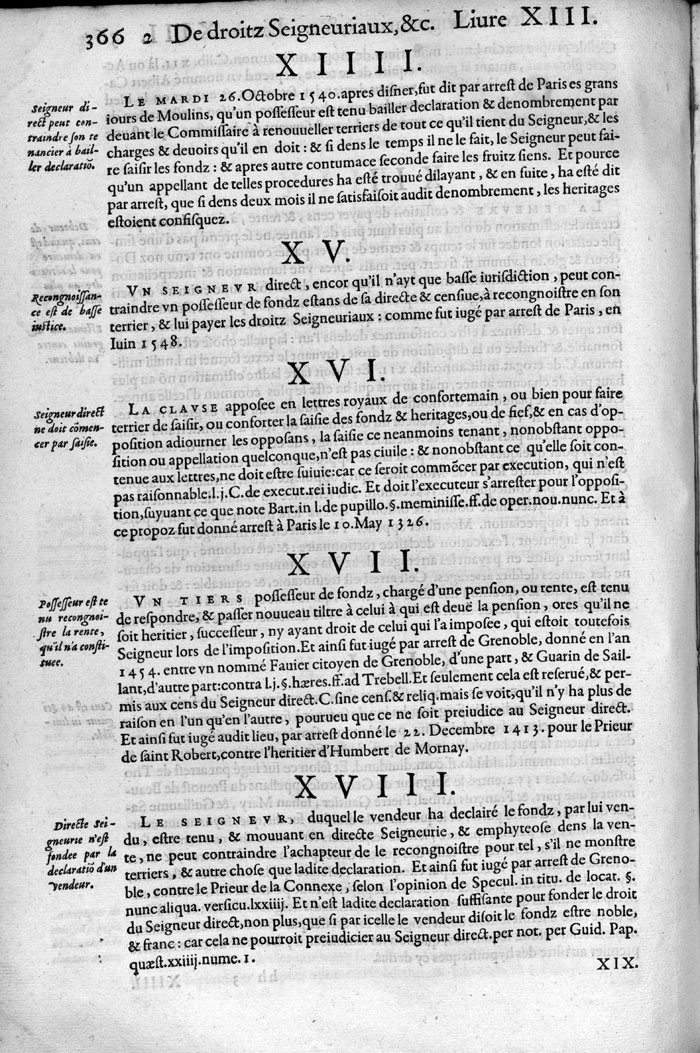 366 2 De droitz Seigneuriaux, &c. Liure XIII.
XIIII.
Seigneur di-
rect peut con-
traindre son te
nancier à bail-
ler declaratiō.
LE MARDI 26. Octobre 1540. apres disner, fut dit par arrest de Paris es grans
iours de Moulins, qu'un possesseur est tenu bailler declaration & denombrement par
deuant le Commissaire à renouueller terriers de tout ce qu'il tient du Seigneur, & les
charges & deuoirs qu'il en doit : & si dens le temps il ne le fait, le Seigneur peut fai-
re saisir les fondz : & apres autre contumace seconde faire les fruitz siens. Et pource
qu'un appellant de telles procedures ha esté trouué dilayant, & en suite, ha esté dit
par arrest, que si dens deux mois il ne satisfaisoit audit denombrement, les heritages
estoient confisquez.
XV.
Recongnoissan-
ce est de basse
iustice.
VN SEIGNEVR direct, encor qu'il n'ayt que basse iurisdiction, peut con-
traindre vn possesseur de fondz estans de sa directe & censiue, à recongnoistre en son
terrier, & lui payer les droitz Seigneuriaux : comme fut iugé par arrest de Paris, en
Iuin 1548.
XVI.
Seigneur direct
ne doit cōmen-
cer par saisie.
LA CLAVSE apposee en lettres royaux de confortemain, ou bien pour faire
terrier de saisir, ou conforter la saisie des fondz & heritages, ou de fief, & en cas d'op-
position adiourner les opposans, la saisie ce neanmoins tenant, nonobstant oppo-
sition ou appellation quelconque, n'est pas ciuile : & nonobstant ce qu'elle soit con-
tenue aux lettres, ne doit estre suiuie: car ce seroit commēcer par execution, qui n'est
pas raisonnable. l. j. C. de execut. rei iudic. Et doit l'executeur s'arrester pour l'opposi-
tion, suyuant ce que note Bart. in l. de pupillo. §. meminisse. ff. de oper. nou. nunc. Et à
ce propoz fut donné arrest à Paris le 10. May 1326.
XVII.
Possesseur est te
nu recongnoi-
stre la rente,
qu'il n'a consti-
tuee.
VN TIERS possesseur de fondz, chargé d'une pension, ou rente, est tenu
de respondre, & passer nouueau tiltre à celui à qui est deuë la pension, ores qu'il ne
soit heritier, successeur, ny ayant droit de celui qui l'a imposee, qui estoit toutesfois
Seigneur lors de l'imposition. Et ainsi fut iugé par arrest de Grenoble, donné en l'an
1454. entre vn nommé Fauier citoyen de Grenoble, d'une part, & Guarin de Sail-
lant, d'autre part: contra l. j. §. hæres. ff. ad Trebell. Et seulement cela est reserué, & per-
mis aux cens du Seigneur direct. C. sine cens. & reliq. mais se voit, qu'il n'y ha plus de
raison en l'un qu'en l'autre, pourueu que ce ne soit preiudice au Seigneur direct.
Et ainsi fut iugé audit lieu, par arrest donné le 22. Decembre 1413. pour le Prieur
de saint Robert, contre l'heritier d'Humbert de Mornay.
XVIII.
Directe Sei-
gneurie n'est
fondee par la
declaratiō d'un
vendeur.
LE SEIGNEVR, duquel le vendeur ha declairé le fondz, par lui ven-
du, estre tenu, & mouuant en directe Seigneurie, & emphyteose dens la ven-
te, ne peut contraindre l'achapteur de le recongnoistre pour tel, s'il ne monstre
terriers, & autre chose que ladite declaration. Et ainsi fut iugé par arrest de Greno-
ble, contre le Prieur de la Connexe, selon l'opinion de Specul. in titu. de locat. §.
nunc aliqua. versicu. lxxiiij. Et n'est ladite declaration suffisante pour fonder le droit
du Seigneur direct, non plus, que si par icelle le vendeur disoit le fondz estre noble,
& franc : car cela ne pourroit preiudicier au Seigneur direct. per not. per Guid. Pap.
quæst. xxiiij. nume. 1.
XIX.